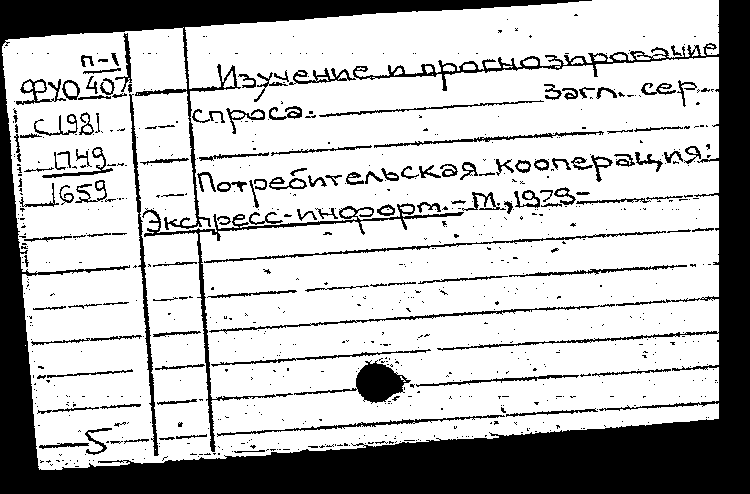 п-1
ФУО 407
с 1981
1749
1659
Изучение и прогнозирование
спроса. Загл. сер.
Потребительская кооперация:
Экспресс-информ. - М., 1979-
5